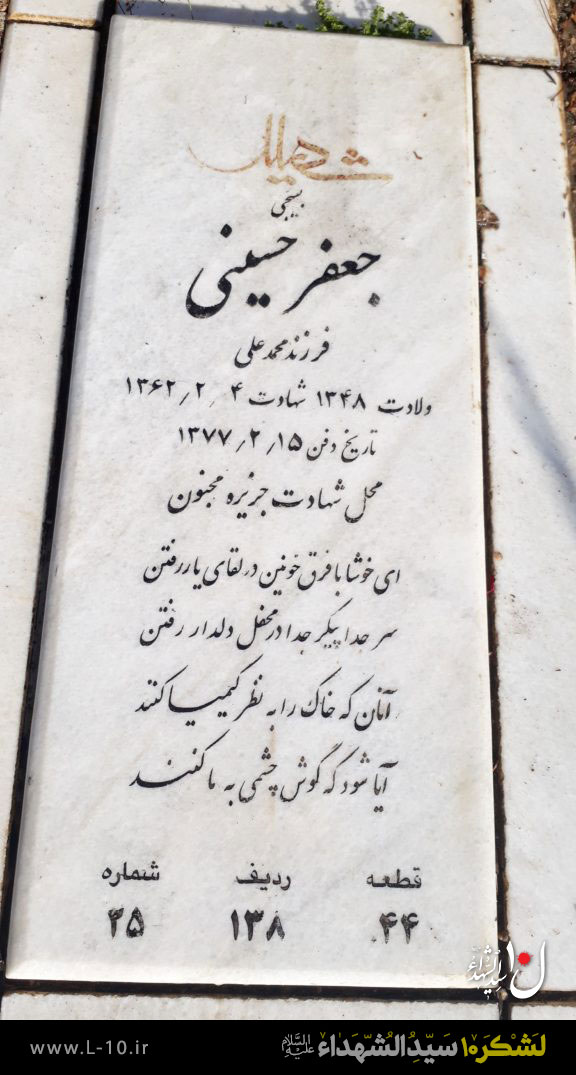 شهید
بسیجی
جعفر حسینی
فرزند محمد علی
ولادت ۱۳۴۸ شهادت ۴ / ۲ / ۱۳۶۲
تاریخ دفن ۱۵ / ۲ / ۱۳۷۷
محل شهادت جزیره مجنون
ای خوشا با فرق خونین در لقای یار رفتن
سر جدا پیکر جدا در محفل دلدار رفتن
آنان که خاک را به نظر کیمیا کنند
آیا شود که گوش چشمی به ما کنند
قطعه ردیف شماره
۴۴ ۱۳۸ ۲۵
ل۱۰ سیدالشهداء
لَشکَر۱۰ سَیِّدُالشُّهَداء عَلَیهِ السَّلام www.L-10.ir